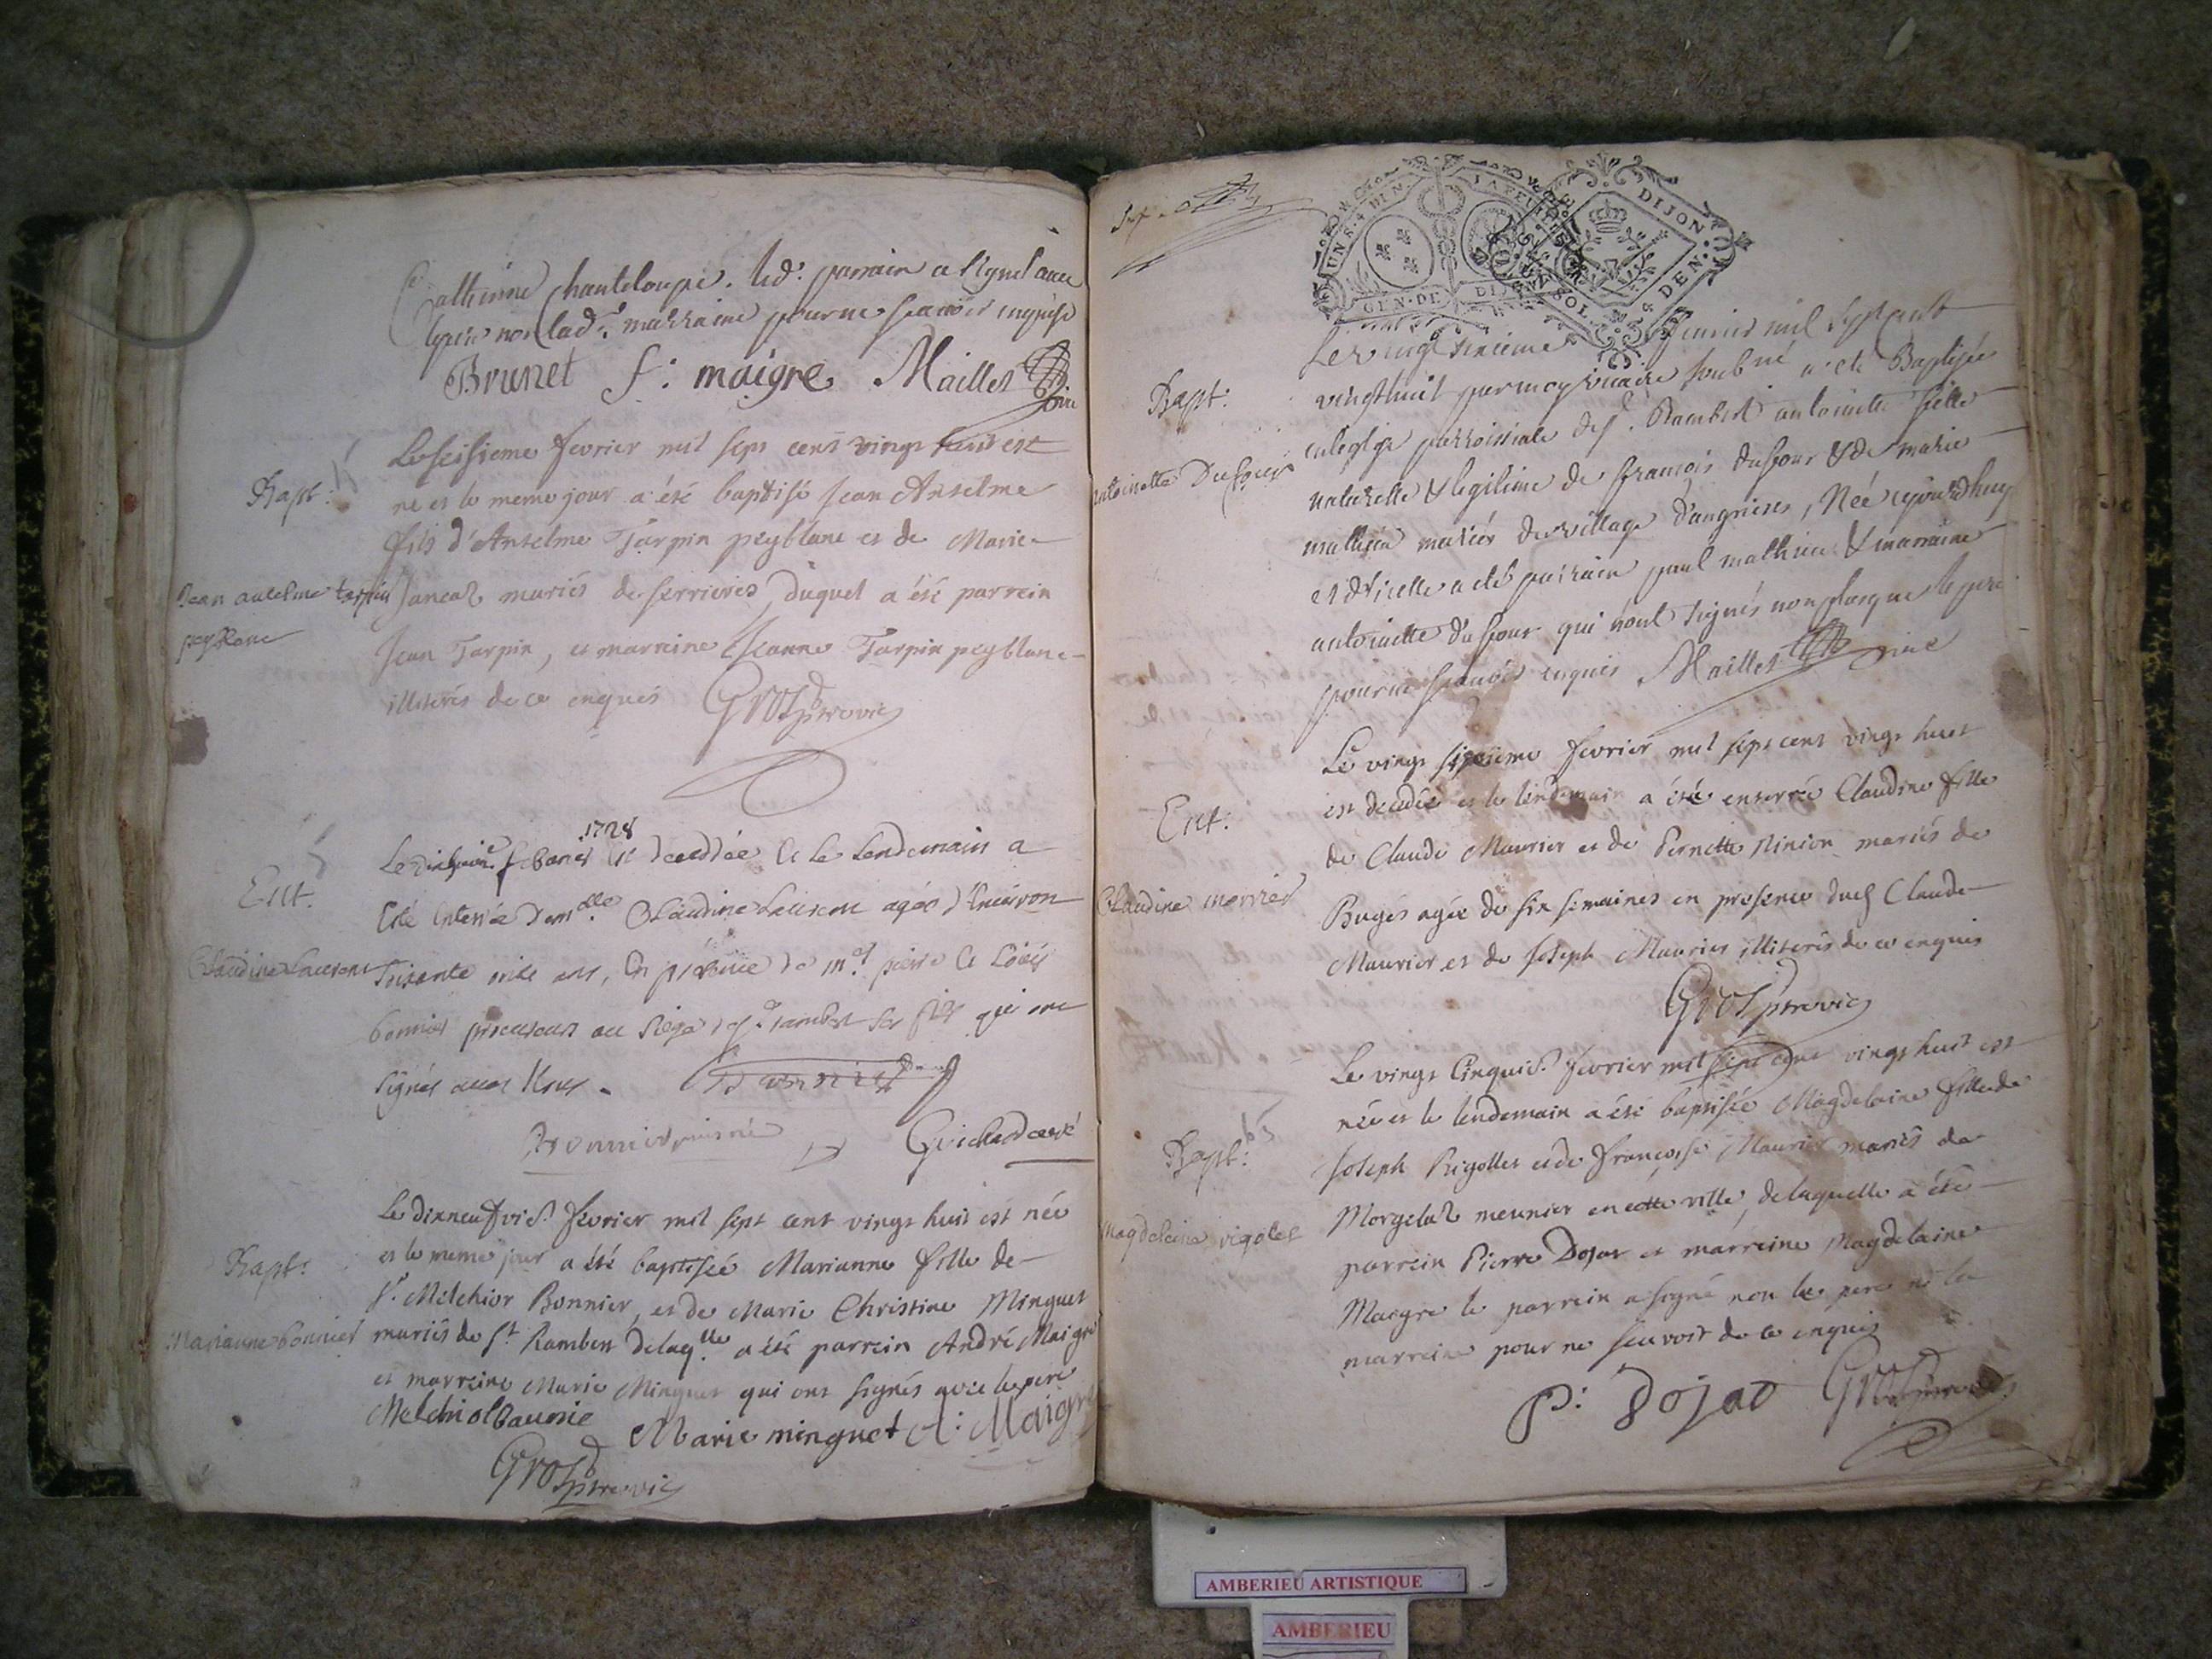 Catherine Chanteloupe. led. parrain a signé avec
le père non lad. marraine pour ne scavoir enquise
Brunet f: maigre Maillet
Bapt:
Jean anselme tarpin
peyblanc
Le seisieme fevrier mil sept cent vingt huit est
né et le meme jour a été baptisé Jean Anselme
fils d'Anselme Tarpin peyblanc et de Marie
Janeaz mariés de serrieres, duquel a été parrein
Jean Tarpin, et marreine Jeanne Tarpin peyblanc
illiterés de ce enquis Gros pr vic
Ent.
Claudine Laurent
1728
Le febvrier est decedée et le Lendemain a
Esté Enterrée Damlle Claudine Laurent agée d'Environ
soixante ans, En présence de Me pierre et Loüis
bonnier procureurs au siege de st rambert ses fils qui ont
signés avec Nous.
Bonnier
Bonnier puisné Guichard curé
Bapt:
Marianne bonnier
Le dixneufvie fevrier mil sept cent vingt huit est née
et le meme jour a été baptisée Marianne fille de
Sr. Melchior Bonnier, et de Marie Christine Minguet
mariés de St Rambert delaqlle a été parrein André Maigre
et marreine Marie Minguet qui ont signés avec le pere
Melchiol baunie Marie minguet A: Maigre
Gros pr vic
UN S. 4 DEN.
LA FEUILLE
GEN. DE DIJON
DIJON
UN SOL 4 DEN.
Bapt:
antoinette Dufour
Le vingt fevrier mil sept cent
vingt huit par moy vicaire soubné a été Baptisée
en l'eglise parroissiale de St. Rambert antoinette fille
naturelle & legitime de françois dufour & de marie
mathieu mariés du village d'angrieres, Née ce jourd'huy
et d'icelle a été parrain paul mathieu & marraine
antoinette dufour qui n'ont signés non plus que le pere
pour ne scavoir enquis Maillet vic
Ent:
Claudine morrier
Le vingt fevrier mil sept cent vingt huit
est decedée et le lendemain a été enterrée Claudine fille
de Claude Maurier et de Pernette Ninion mariés de
Buges agée de six semaines en presence dud Claude
Maurier et de Joseph Maurier illiterés de ce enquis
Gros pr vic
Bapt:
Magdelaine rigolet
Le vingt Cinquie. fevrier mil sept cent vingt huit est
née et le lendemain a été baptisée Magdelaine fille de
Joseph Rigollet et de françoise Maurier mariés de
Morgelaz meunier en cette ville, de laquelle a été
parrein Pierre Dojat et marreine Magdelaine
Maigre le parrein a signé non le pere ni la
marreine pour ne scavoir de ce enquis
P: Dojat Gros pr vic
AMBERIEU ARTISTIQUE
AMBERIEU